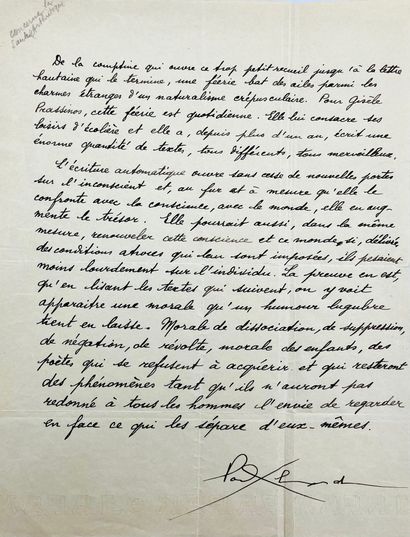 concernant la
De la comptine qui ouvre ce trop petit recueil jusqu'à la lettre
hautaine qui le termine, une féerie bat des ailes parmi les
charmes étranges d'un naturalisme crépusculaire. Pour Gisèle
Prassinos, cette féerie est quotidienne. Elle lui consacre ses
loisirs d'écolière et elle a, depuis plus d'un an, écrit une
énorme quantité de textes, tous différents, tous merveilleux.
L'écriture automatique ouvre sans cesse de nouvelles portes
sur l'inconscient et, au fur et à mesure qu'elle le
confronte avec la conscience, avec le monde, elle en aug-
mente le trésor. Elle pourrait aussi, dans la même
mesure, renouveler cette conscience et ce monde, si, délivrés
des conditions atroces qui leur sont imposées, ils pesaient
moins lourdement sur l'individu. La preuve en est,
qu'en lisant les textes qui suivent, on y voit
apparaître une morale qu'un humour lugubre
tient en laisse. Morale de dissociation, de suppression,
de négation, de révolte, morale des enfants, des
poètes qui se refusent à acquérir et qui resteront
des phénomènes tant qu'ils n'auront pas
redonné à tous les hommes l'envie de regarder
en face ce qui les sépare d'eux-mêmes.
Paul Eluard